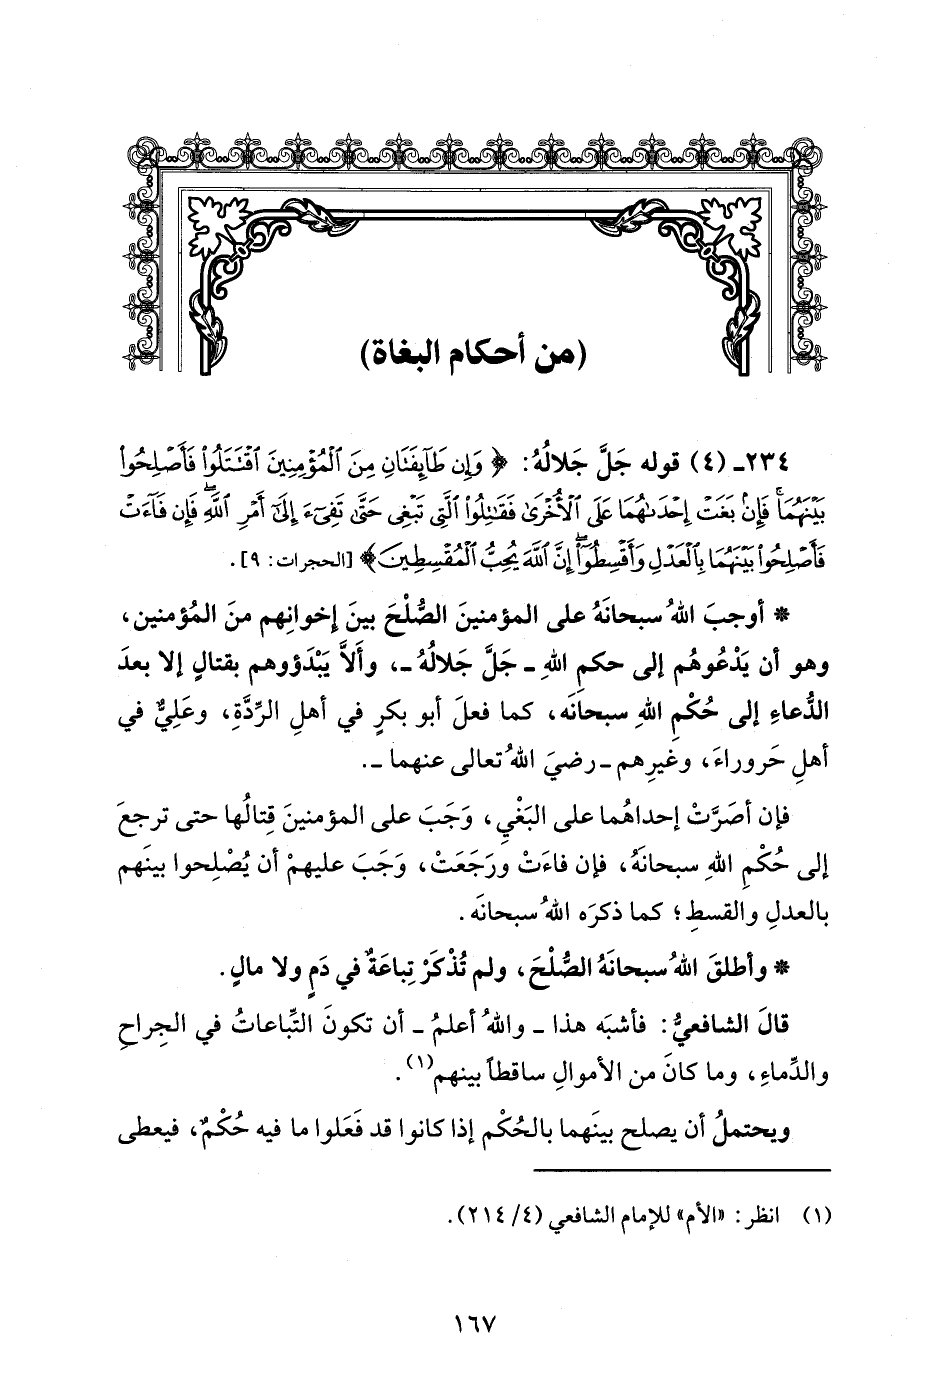 (من أحكام البغاة)
٢٣٤ـ (٤) قوله جَلَّ جَلالُهُ: ﴿ وَإِن طَآئِفَتَانِ مِنَ ٱلْمُؤْمِنِينَ ٱقْتَتَلُوا۟ فَأَصْلِحُوا۟
بَيْنَهُمَا ۖ فَإِنۢ بَغَتْ إِحْدَىٰهُمَا عَلَى ٱلْأُخْرَىٰ فَقَٰتِلُوا۟ ٱلَّتِى تَبْغِى حَتَّىٰ تَفِىٓءَ إِلَىٰٓ أَمْرِ ٱللَّهِ ۚ فَإِن فَآءَتْ
فَأَصْلِحُوا۟ بَيْنَهُمَا بِٱلْعَدْلِ وَأَقْسِطُوٓا۟ ۖ إِنَّ ٱللَّهَ يُحِبُّ ٱلْمُقْسِطِينَ﴾ [الحجرات: ٩].
* أوجبَ اللهُ سبحانَهُ على المؤمنينَ الصُّلْحَ بينَ إخوانِهم منَ المُؤمنين،
وهو أن يَدْعُوهُم إلى حكمِ اللهِ ـ جَلَّ جَلالُهُ ـ، وأَلاَّ يَبْدَؤوهم بقتالٍ إلا بعدَ
الدُّعاءِ إلى حُكْمِ اللهِ سبحانَه، كما فعلَ أبو بكرٍ في أهلِ الرِّدَّةِ، وعَلِيٌّ في
أهلِ حَروراءَ، وغيرِهم ـ رضيَ اللهُ تعالى عنهما ـ.
فإن أصَرَّتْ إحداهُما على البَغْيِ، وَجَبَ على المؤمنينَ قِتالُها حتى ترجعَ
إلى حُكْمِ اللهِ سبحانَهُ، فإن فاءَتْ ورَجَعَتْ، وَجَبَ عليهمْ أن يُصْلِحوا بينَهم
بالعدلِ والقسطِ؛ كما ذكرَه اللهُ سبحانَه.
* وأطلقَ اللهُ سبحانَهُ الصُّلْحَ، ولم تُذْكَرْ تِباعَةٌ في دَمٍ ولا مالٍ.
قالَ الشافعيُّ: فأشبَه هذا ـ واللهُ أعلمُ ـ أن تكونَ التِّباعاتُ في الجِراحِ
والدِّماءِ، وما كانَ من الأموالِ ساقطاً بينهم(١).
ويحتملُ أن يصلح بينَهما بالحُكْم إذا كانوا قد فَعَلوا ما فيه حُكْمٌ، فيعطى
(١) انظر: «الأم» للإمام الشافعي (٤/ ٢١٤).
١٦٧